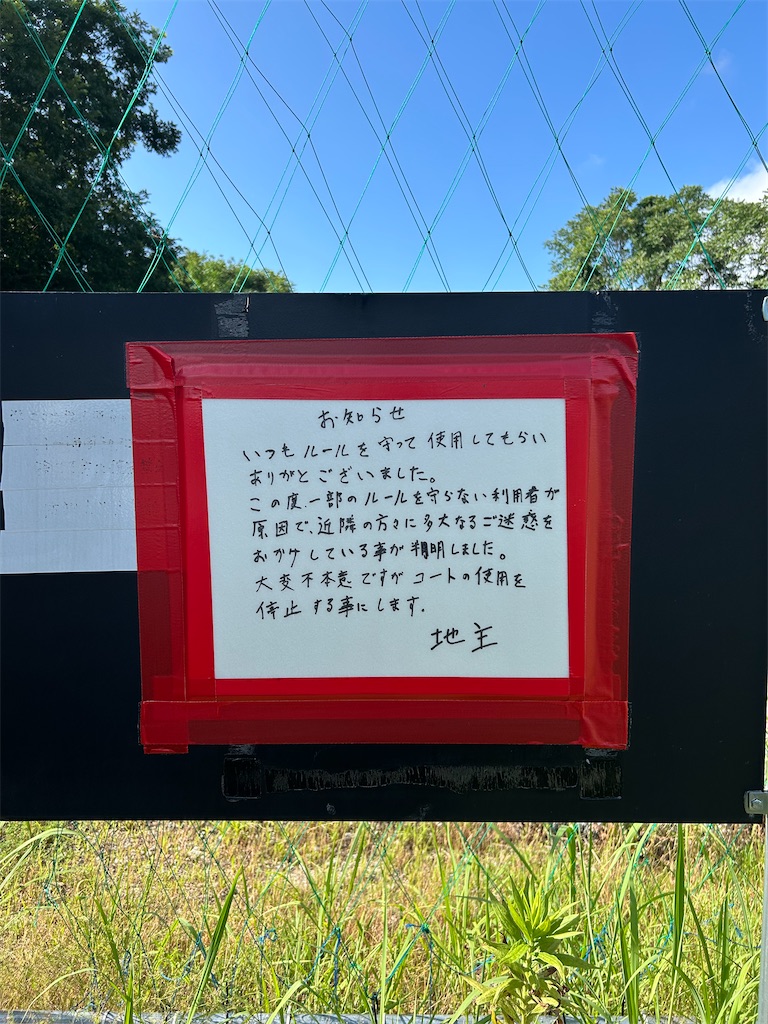 お知らせ
いつもルールを守って使用してもらい
ありがとございました。
この度、一部のルールを守らない利用者が
原因で、近隣の方々に多大なるご迷惑を
おかけしている事が判明しました。
大変不本意ですがコートの使用を
停止する事にします。
地主